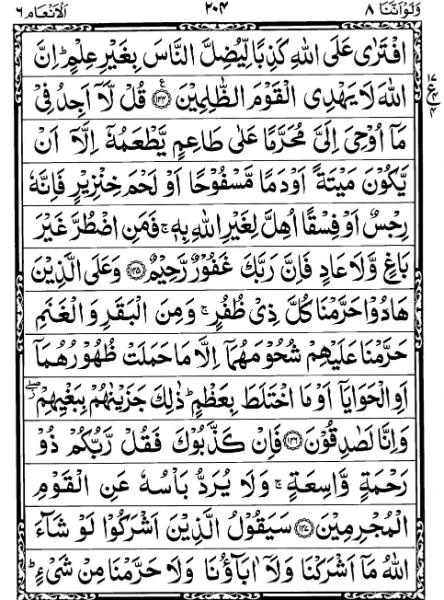 وَلَوْ اَنَّنَا ٨ ٢٠٤ اَلْاَنْعَام ٦
افْتَرٰى عَلَى اللّٰهِ كَذِبًا لِّيُضِلَّ النَّاسَ بِغَيْرِ عِلْمٍ ؕ اِنَّ
اللّٰهَ لَا يَهْدِى الْقَوْمَ الظّٰلِمِيْنَ ﴿١٤٤﴾ قُلْ لَّاۤ اَجِدُ فِىْ
مَاۤ اُوْحِىَ اِلَىَّ مُحَرَّمًا عَلٰى طَاعِمٍ يَّطْعَمُهٗۤ اِلَّاۤ اَنْ
يَّكُوْنَ مَيْتَةً اَوْ دَمًا مَّسْفُوْحًا اَوْ لَحْمَ خِنْزِيْرٍ فَاِنَّهٗ
رِجْسٌ اَوْ فِسْقًا اُهِلَّ لِغَيْرِ اللّٰهِ بِهٖ ۚ فَمَنِ اضْطُرَّ غَيْرَ
بَاغٍ وَّلَا عَادٍ فَاِنَّ رَبَّكَ غَفُوْرٌ رَّحِيْمٌ ﴿١٤٥﴾ وَعَلَى الَّذِيْنَ
هَادُوْا حَرَّمْنَا كُلَّ ذِىْ ظُفُرٍ ۚ وَمِنَ الْبَقَرِ وَالْغَنَمِ
حَرَّمْنَا عَلَيْهِمْ شُحُوْمَهُمَاۤ اِلَّا مَا حَمَلَتْ ظُهُوْرُهُمَاۤ
اَوِ الْحَوَايَاۤ اَوْ مَا اخْتَلَطَ بِعَظْمٍ ؕ ذٰلِكَ جَزَيْنٰهُمْ بِبَغْيِهِمْ ۖ
وَاِنَّا لَصٰدِقُوْنَ ﴿١٤٦﴾ فَاِنْ كَذَّبُوْكَ فَقُلْ رَّبُّكُمْ ذُوْ
رَحْمَةٍ وَّاسِعَةٍ ۚ وَلَا يُرَدُّ بَاْسُهٗ عَنِ الْقَوْمِ
الْمُجْرِمِيْنَ ﴿١٤٧﴾ سَيَقُوْلُ الَّذِيْنَ اَشْرَكُوْا لَوْ شَآءَ
اللّٰهُ مَاۤ اَشْرَكْنَا وَلَاۤ اٰبَآؤُنَا وَلَا حَرَّمْنَا مِنْ شَىْءٍ ؕ